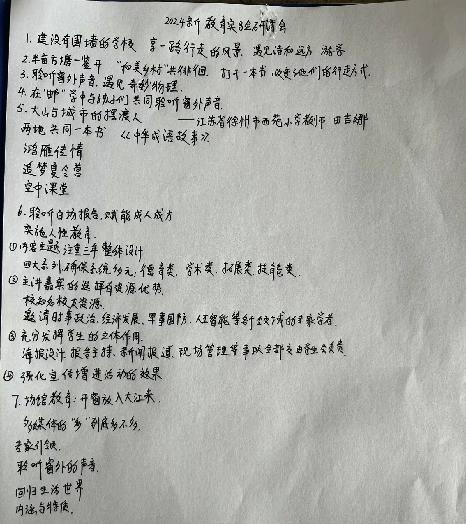 2024新教育实验研讨会
1. 建设有围墙的学校 享一路行走的风景 遇见诗和远方 游客
2. 半亩方塘一鉴开 “和美乡村”共徘徊. 打开一本书,改变她们的行走方式.
3. 聆听窗外声音,遇见奇妙物理.
4. 在“田”字中与幼儿们共同聆听窗外声音.
5. 大山与城市的摆渡人 ——江苏省徐州市西苑小学教师
两地共同一本书 《中华成语故事》
鸿雁传情
追梦夏令营
空中课堂
6. 聆听百场报告,赋能成人成才
实施人性教育.
①内容主题 注重三年整体设计
四大系列,确保系统多元: 德育类、学术类、拓展类、技能类.
②主讲嘉宾的选择有资源优势.
校友名校友资源.
邀请时事政治、经济发展、军事国防、人工智能等等领域的专家学者.
③充分发挥学生的主体作用
海报设计 报告主持、新闻报道、现场管理等事
④强化宣传增进活动的效果
7. 场馆教育: 开窗放入大江来.
专家引领.
聆听窗外的声音.
回归生活世界
内涵与特质.